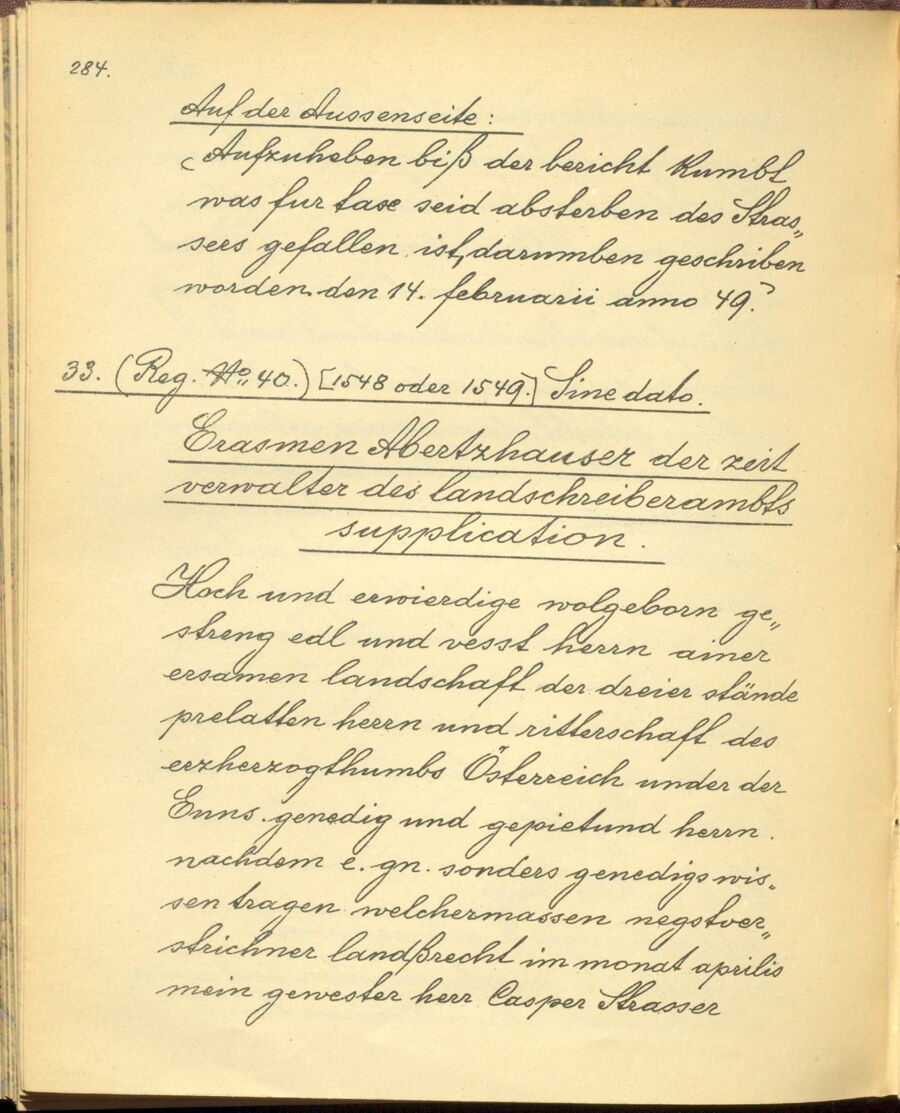 284.
Auf der Aussenseite:
(Aufzuheben biß der bericht kumbt
was fur taxe seid absterben des Stras„
sers gefallen ist, darumben geschriben
worden den 14. februarii anno 49.)
33. (Reg. No. 40.) [1548 oder 1549.] Sine dato.
Erasmen Abertzhauser der zeit
verwalter des landschreiberambts
supplication.
Hoch und erwierdige wolgeborn ge„
streng edl und vesst herrn ainer
ersamen landschaft der dreier stände
prelatten herrn und ritterschaft des
erzherzogthumbs Österreich under der
Enns. genedig und gepietund herrn.
nachdem e. gn. sonders genedigs wis„
sen tragen welchermassen negstver„
strichner landßrecht im monat aprilis
mein gewester herr Casper Strasser